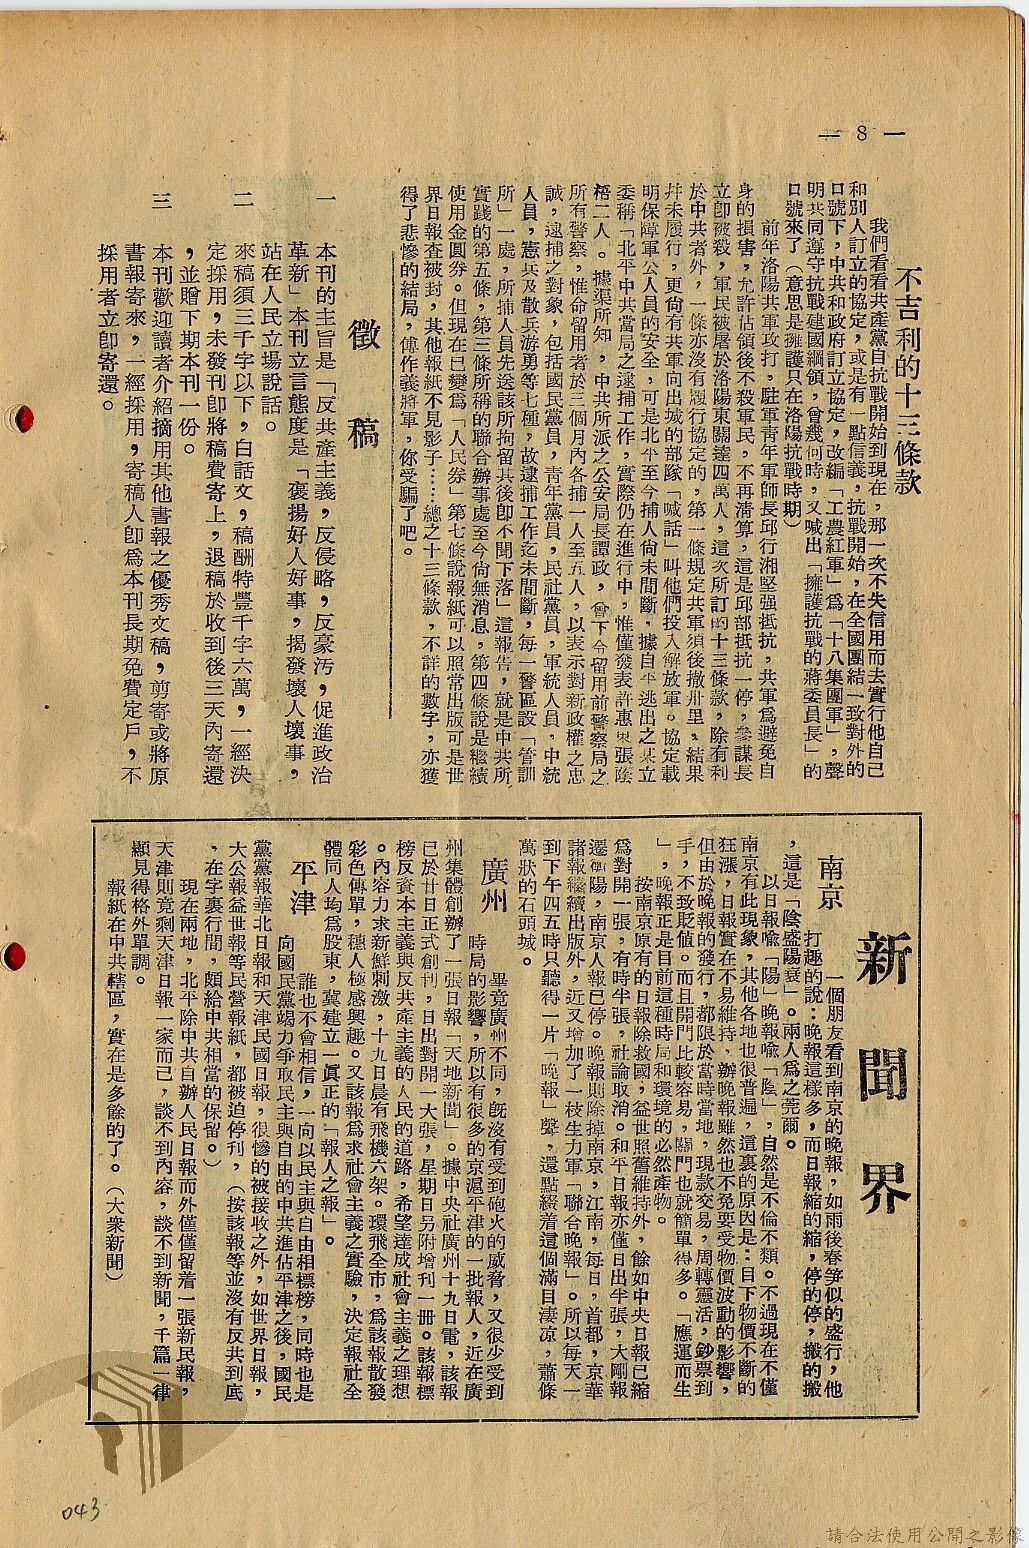 — 8 —
不吉利的十三條款
我們看看共產黨自抗戰開始到現在，那一次不失信用而去實行他自己
和別人訂立的協定，或是有一點信義，抗戰開始，在全國團結一致對外的
口號下，中共和政府訂立協定，改編「工農紅軍」為「十八集團軍」，聲
明共同遵守抗戰建國綱領，曾幾何時，又喊出「擁護抗戰的蔣委員長」的
口號來了（意思是擁護只在洛陽抗戰時期）
前年洛陽共軍攻打，駐軍青年軍師長邱行湘堅強抵抗，共軍為避免自
身的損害，允許佔領後不殺軍民，不再清算，這是邱部抵抗一停，參謀長
立卽被殺，軍民被屠於洛陽東關達四萬人，這次所訂的十三條款，除有利
於中共者外，一條亦沒有履行協定的，第一條規定共軍須後撤卅里，結果
幷未履行，更尙有共軍向出城的部隊「喊話」叫他們投入解放軍。協定載
明保障軍公人員的安全，可是北平至今捕人尙未間斷，據自平逃出之某立
委稱「北平中共當局之逮捕工作，實際仍在進行中，惟僅發表許惠東張蔭
梧二人。據渠所知，中共所派之公安局長譚政，曾下令留用前警察局之
所有警察，惟命留用者於三個月內各捕一人至五人，以表示對新政權之忠
誠，逮捕之對象，包括國民黨員，靑年黨員，民社黨員，軍統人員，中統
人員，憲兵及散兵游勇等七種，故逮捕工作迄未間斷，每一警區設「管訓
所」一處，所捕人員先送該所拘留其後卽不聞下落」這報告，就是中共所
實踐的第五條，第三條所稱的聯合辦事處至今尙無消息，第四條說是繼續
使用金圓券。但現在已變為「人民券」第七條說報紙可以照常出版可是世
界日報查被封，其他報紙不見影子……總之十三條款，不詳的數字，亦獲
得了悲慘的結局，傅作義將軍，你受騙了吧。
徵稿
一　本刊的主旨是「反共產主義，反侵略，反豪污，促進政治
革新」本刊立言態度是「褒揚好人好事，揭發壞人壞事，
站在人民立場說話。
二　來稿須三千字以下，白話文，稿酬特豐千字六萬，一經決
定採用，未發刊卽將稿費寄上，退稿於收到後三天內寄還
，並贈下期本刊一份。
三　本刊歡迎讀者介紹摘用其他書報之優秀文稿，剪寄或將原
書報寄來，一經採用，寄稿人卽為本刊長期免費定戶，不
採用者立卽寄還。
新聞界
南京　一個朋友看到南京的晚報，如雨後春笋似的盛行，他
打趣的說：晚報這樣多，而日報縮的縮，停的停，搬的搬
，這是「陰盛陽衰」。兩人為之莞爾。
以日報喩「陽」晚報喩「陰」，自然是不倫不類。不過現在不僅
南京有此現象，其他各地也很普遍，這裏的原因是：目下物價不斷的
狂漲，日報實在不易維持，辦晚報雖然也不免要受物價波動的影響，
但由於晚報的發行，都限於當時當地，現款交易，周轉靈活，鈔票到
手，不致貶値。而且開門比較容易，關門也就簡單得多。「應運而生
」，晚報正是目前這種時局和環境的必然產物。
按南京原有的日報除救國，益世照舊維持外，餘如中央日報已縮
為對開一張，有時半張，社論取消。和平日報亦僅日出半張，大剛報
遷衡陽，南京人報已停。晚報則除掉南京，江南，每日，首都，京華
諸報繼續出版外，近又增加了一枝生力軍「聯合晚報」。所以每天一
到下午四五時只聽得一片「晚報」聲，還點綴着這個滿目淒凉，蕭條
萬狀的石頭城。
廣州　畢竟廣州不同，旣沒有受到砲火的威脅，又很少受到
時局的影響，所以有很多的京滬平津的一批報人，近在廣
州集體創辦了一張日報「天地新聞」。據中央社廣州十九日電，該報
已於廿日正式創刊，日出對開一大張，星期日另附增刊一册。該報標
榜反資本主義與反共產主義的人民的道路，希望達成社會主義之理想
。內容力求新鮮刺激，十九日晨有飛機六架。環飛全市，為該報散發
彩色傳單，穗人極感興趣。又該報為求社會主義之實驗，決定報社全
體同人均為股東，冀建立一眞正的「報人之報」。
平津　誰也不會相信，一向以民主與自由相標榜，同時也是
向國民黨竭力爭取民主與自由的中共進佔平津之後，國民
黨黨報華北日報和天津民國日報，很慘的被接收之外，如世界日報，
大公報益世報等民營報紙，都被迫停刊，（按該報等並沒有反共到底
，在字裏行間，頗給中共相當的保留。）
現在兩地，北平除中共自辦人民日報而外僅僅留着一張新民報，
天津則竟剩天津日報一家而已，談不到內容，談不到新聞，千篇一律
顯見得格外單調。
報紙在中共轄區，實在是多餘的了。（大衆新聞）
043
請合法使用公開之影像